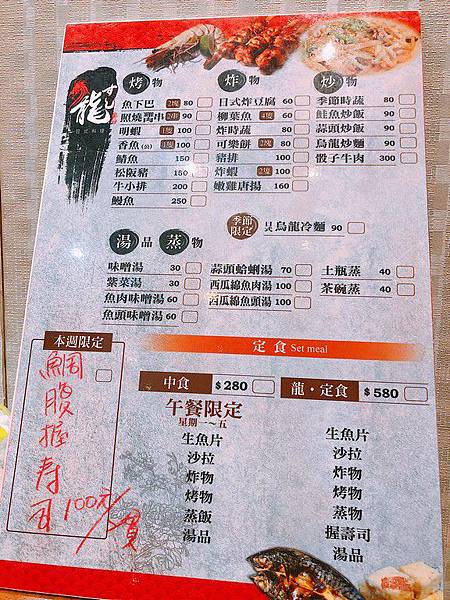 すし
龍
日式料理
烤物
魚下巴 2塊 80
照燒雞串 2串 90
明蝦 1隻 100
香魚(公) 1隻 100
鯖魚 150
松阪豬 150
牛小排 200
鰻魚 250
炸物
日式炸豆腐 60
柳葉魚 4隻 60
炸時蔬 80
可樂餅 2塊 80
豬排 100
炸蝦 2隻 100
嫩雞唐揚 160
炒物
季節時蔬 80
鮭魚炒飯 90
蒜頭炒飯 90
烏龍炒麵 90
骰子牛肉 300
季節限定
日式烏龍冷麵 90
湯品
味噌湯 30
紫菜湯 30
魚肉味噌湯 60
魚頭味噌湯 60
蒸物
蒜頭蛤蜊湯 70
西瓜綿魚肉湯 100
西瓜綿魚頭湯 100
土瓶蒸 40
茶碗蒸 40
本週限定
鯛腹握寿司100元/貫
定食 Set meal
中食 $280
午餐限定
星期一~五
生魚片
沙拉
炸物
烤物
蒸飯
湯品
龍・定食 $580
生魚片
沙拉
炸物
烤物
蒸物
握壽司
湯品